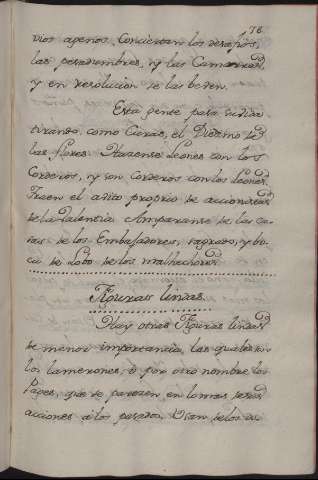 78
vios agenos. Conciertan los desafios,
las pesadumbres, y las Camorras,
y en resolucion se las beven.
Esta gente pasa su vida
tirando, como Curas, el Diezmo de
las flores. Hacense leones con los
Corderos, y son Corderos con los leones.
Traen el adito proprio de accionistas
de la Valentia. Amparanse de las Ca-
sas de los Embajadores, sagrado, y bo-
ca de Lobo de los malhechores.
Figuras lindas.
Hay otras Figuras lindas
de menor importancia, las quales son
los lamerones, o por otro nombre los
Pages, que se parecen en lo mas de sus
acciones a los pasados. Usan de los